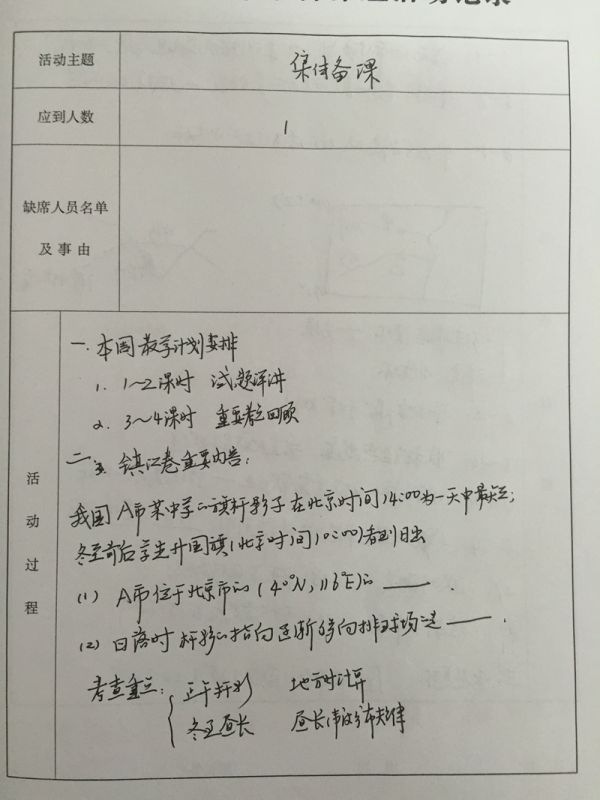 活动主题
集体备课
应到人数
1
缺席人员名单
及事由
活动过程
一.本周教学计划安排
1. 1~2课时 试题详讲
2. 3~4课时 重要考点回顾
二. 镇江卷重要内容:
我国A市某中学的旗杆影子在北京时间14:00为一天中最短;
冬至前后学生升国旗(北京时间10:00)看到日出
(1) A市位于北京市的(40°N,116°E)的____.
(2) 日落时杆影的指向逐渐偏向排球场这____.
考查重点: 正午杆影 地方时计算
冬至昼长 昼长的分布规律